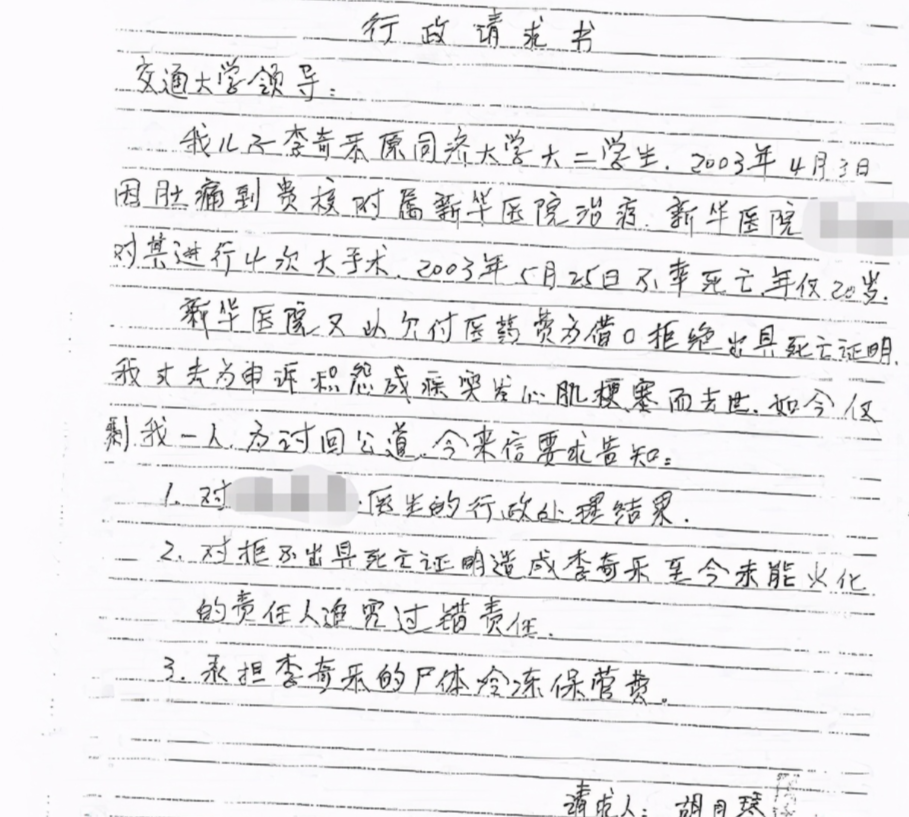 行政请求书
交通大学领导：
我儿子李奇乐原同济大学大二学生．2003年4月3日
因肚痛到贵校附属新华医院治疗．新华医院
对其进行4次大手术．2003年5月25日不幸死亡．年仅20岁．
新华医院又以欠付医药费为借口拒绝出具死亡证明．
我丈夫为申诉积怨成疾突发心肌梗塞而去世．如今仅
剩我一人．为讨回公道．今来信要求告知：
1．对 医生的行政处理结果．
2．对拒不出具死亡证明造成李奇乐至今未能火化
的责任人追究过错责任．
3．承担李奇乐的尸体冷冻保管费．
请求人：胡月琴